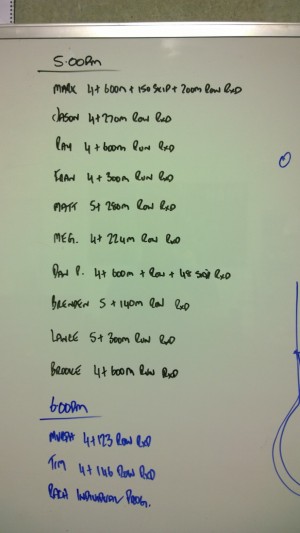 5:00pm
MARK 4 + 600m + 150 SKIP + 200m Row RXD
JASON 4 + 270m Row RXD
RAY 4 + 600m RUN RXD
FRAN 4 + 300m RUN RXD
MATT 5 + 280m Row RXD
MEG. 4 + 224m Row RXD
DAN P. 4 + 600m + Row + 48 SKIP RXD
BRENDEN 5 + 140m Row RXD
LANCE 5 + 300m RUN RXD
BROOKE 4 + 600m RUN RXD
6:00pm
4 + 123 Row RXD
TIM 4 + 146 Row RXD
INDIVIDUAL PROG.